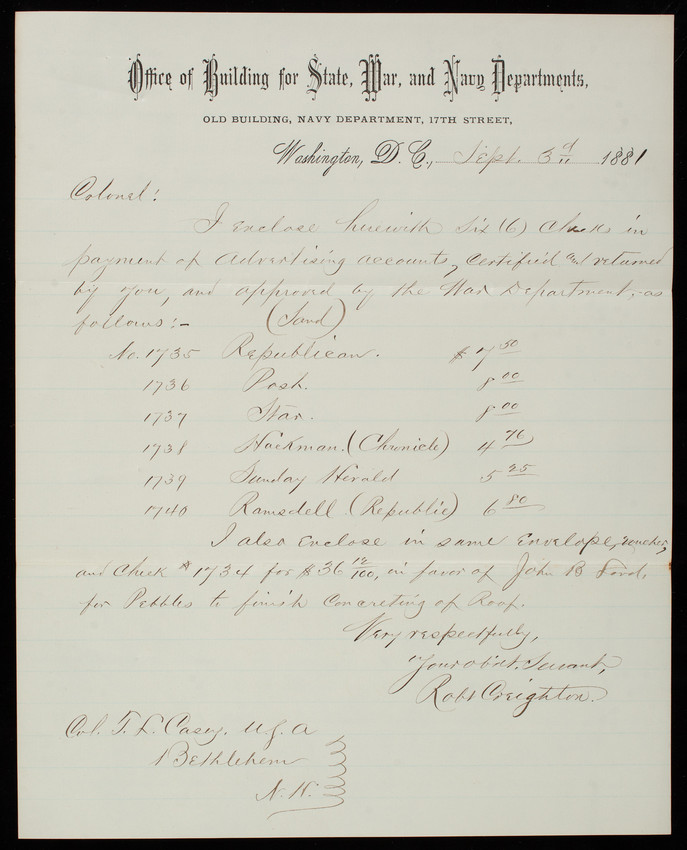 Office of Building for State, War, and Navy Departments,
OLD BUILDING, NAVY DEPARTMENT, 17TH STREET,
Washington, D. C., Sept. 3d 1881
Colonel:
I enclose herewith six (6) checks in
payment of advertising accounts, certified and returned
by you, and approved by the War Department, as
follows:- (Sand)
No. 1735 Republican. $7 50
1736 Post. 8 00
1737 Star. 8 00
1738 Hackman. (Chronicle) 4 76
1739 Sunday Herald 5 25
1740 Ramsdell (Republic) 6 80
I also enclose in same envelope, voucher,
and check # 1734 for $36 12/100, in favor of John B Lord,
for Pebbles to finish Concreting of Roof.
Very respectfully,
Your obdt. Servant,
Robt Creighton.
Col. T. L. Casey, U.S.A
Bethlehem
N. H.